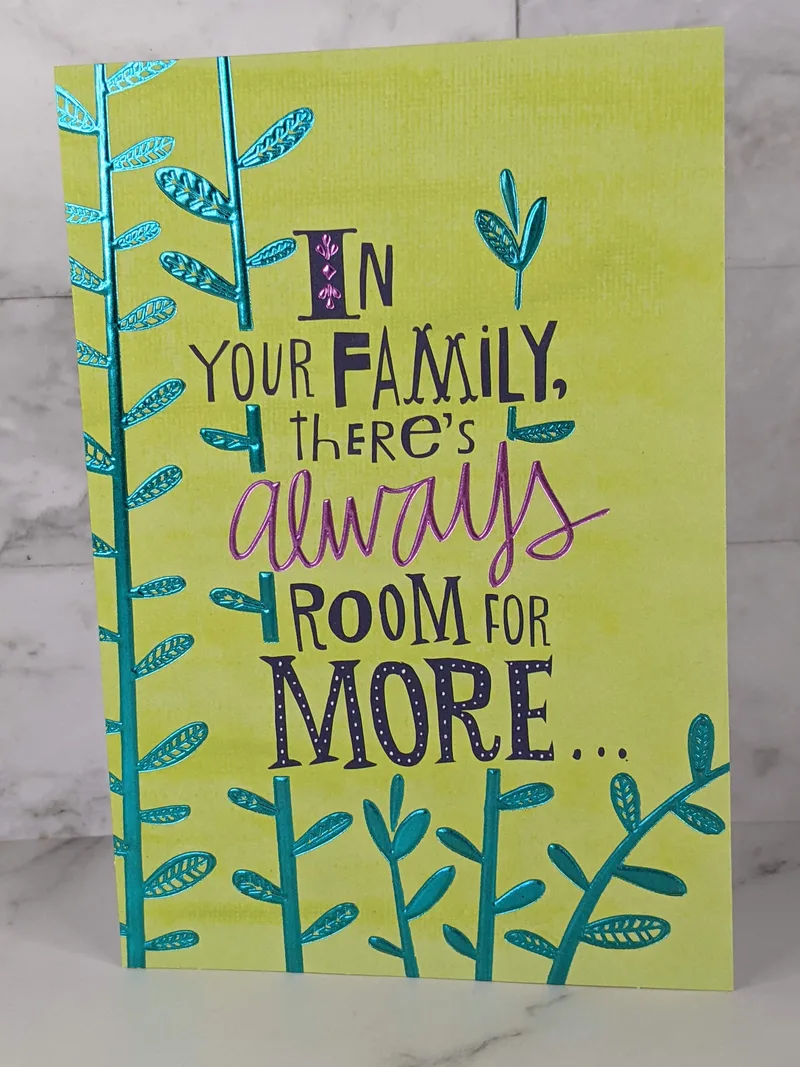 In
YOUR FAMiLY,
thERe's
always
ROOM FOR
MORE...